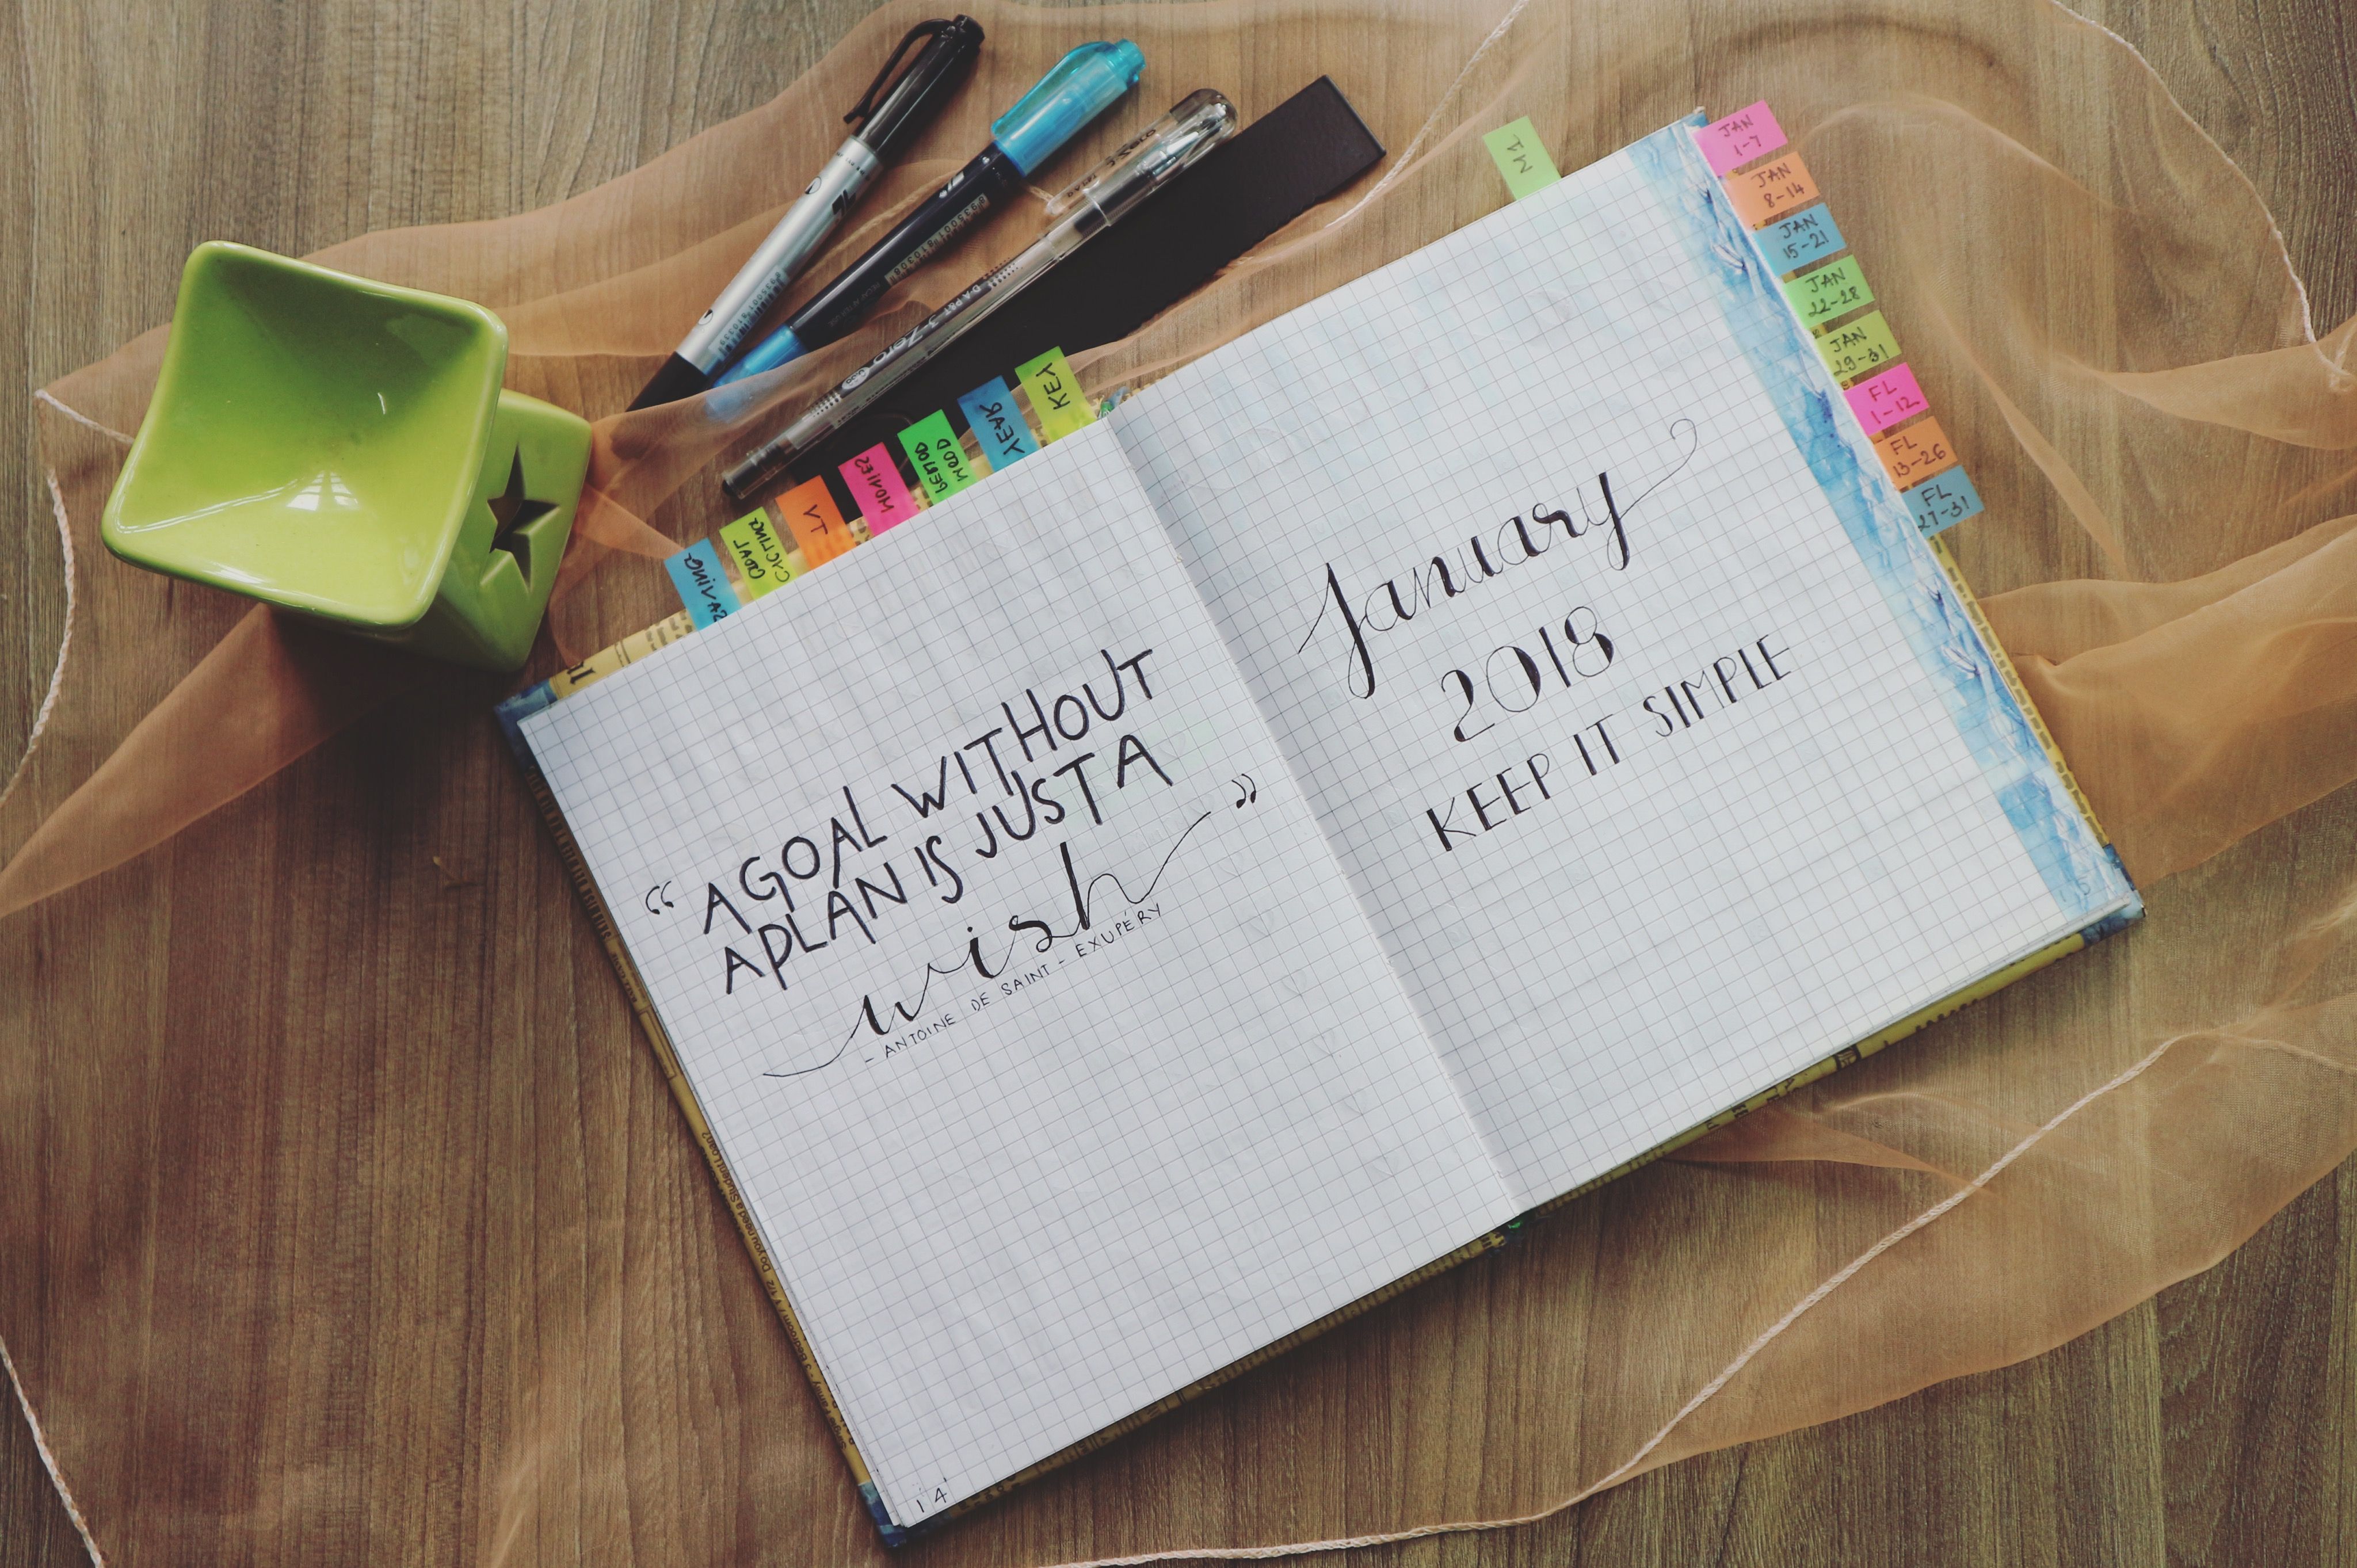 JAN
1-7
JAN
8-14
JAN
15-21
JAN
22-28
JAN
29-31
FL
1-12
FL
13-26
FL
27-31
KEY
YEAR
PERIOD
MOOD
MOVIES
TV
GOAL
CYCLING
SAVING
“ A GOAL WITHOUT
A PLAN IS JUST A
wish ”
- ANTOINE DE SAINT - EXUPÉRY
14
January
2018
KEEP IT SIMPLE
Zero
Do you need a Student Loan?